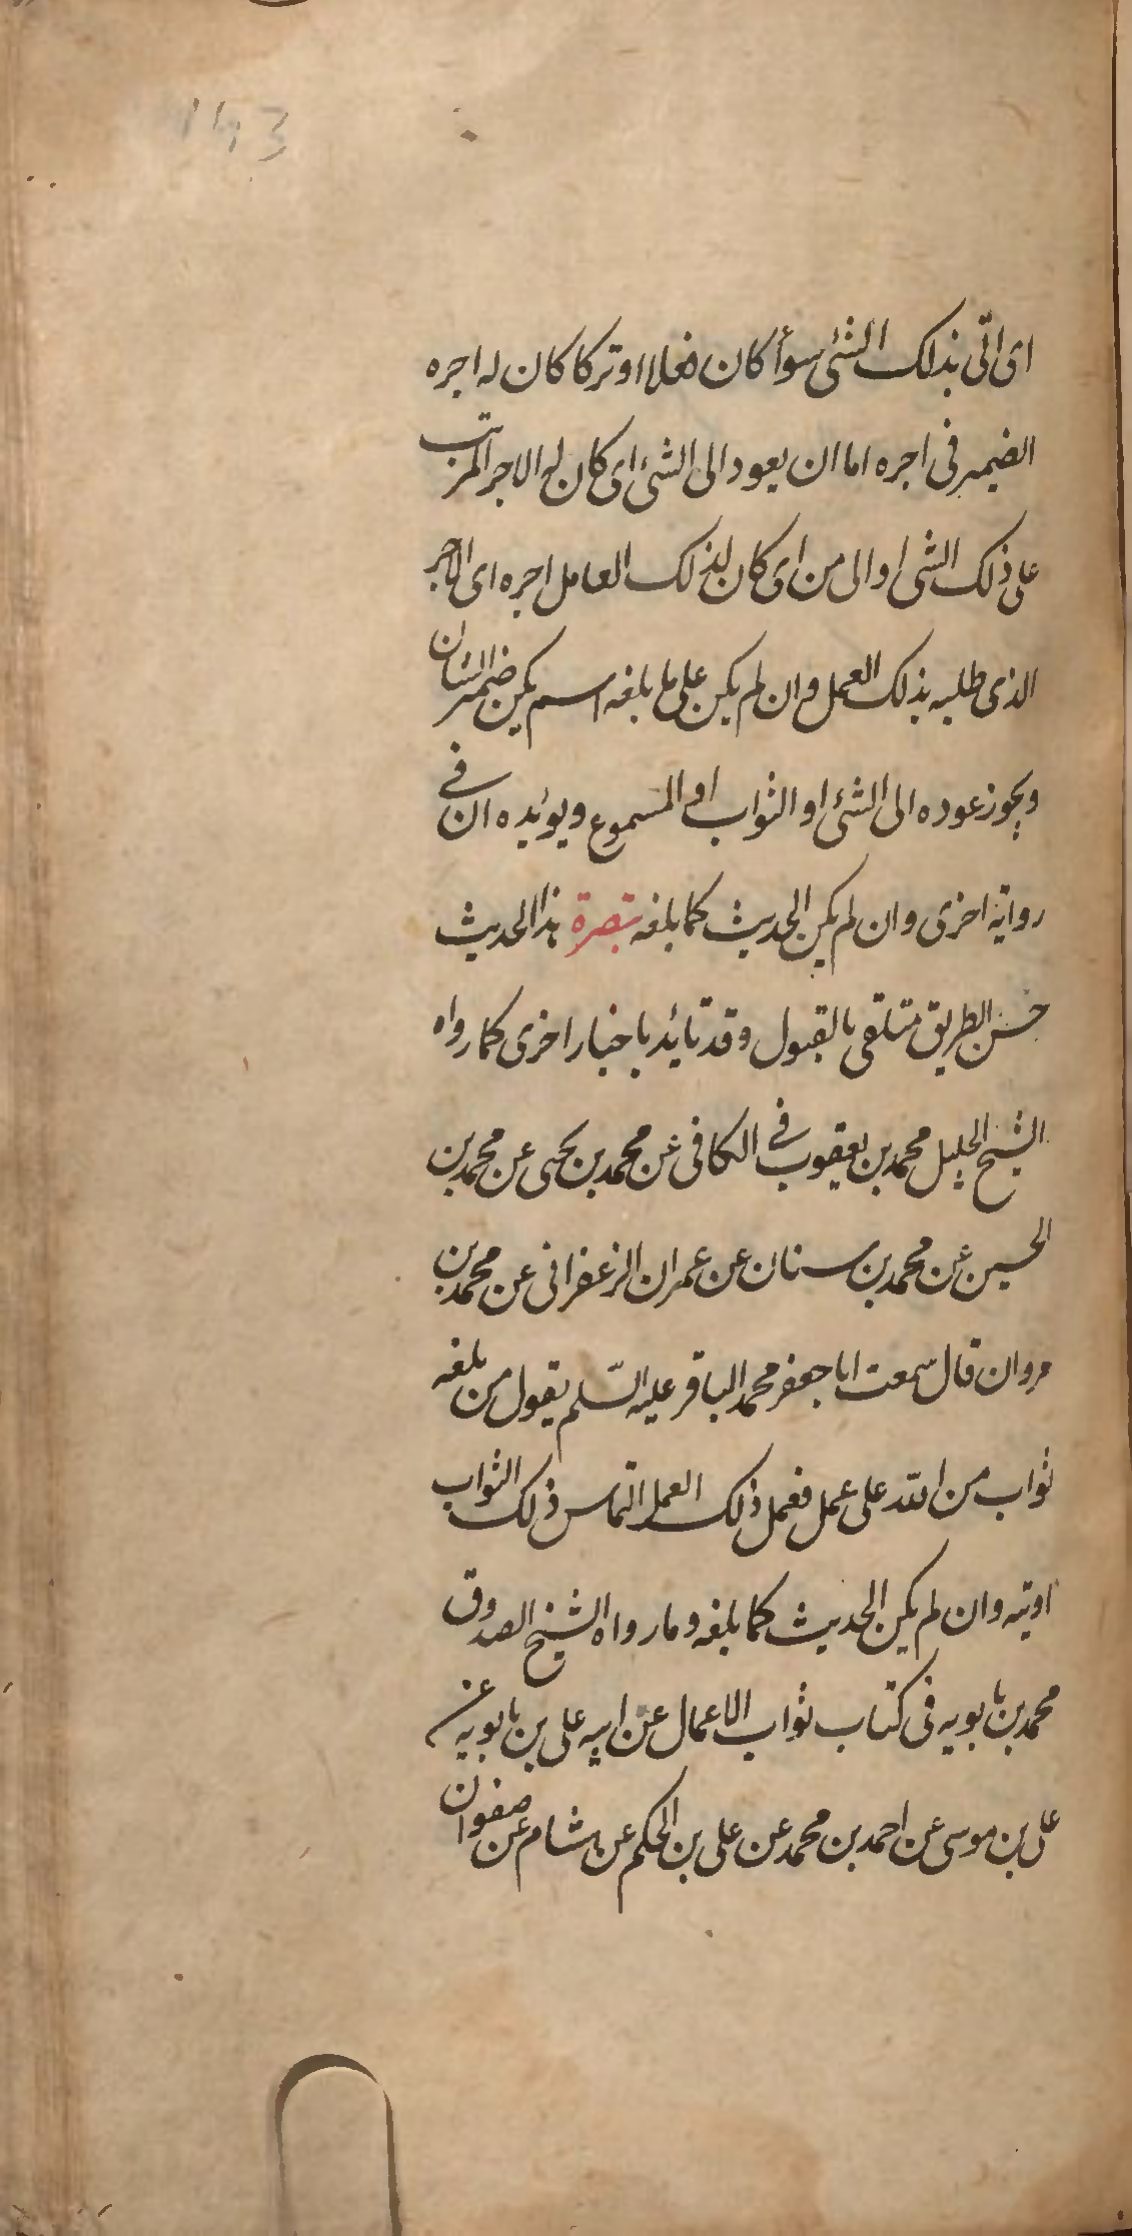 143
ای اتی بذلک الشئ سوأ کان فعلا او ترکا کان له اجره
الضمیر فی اجره اما ان یعود الی الشئ ای کان له الاجر المترتب
علی ذلک الشی او الی من ای کان لذلک العامل اجره ای الاجر
الذی طلبه بذلک العمل و ان لم یکن علی ما بلغه اسم یکن ضمیر الشان
ویجوز عوده الی الشئ او الثواب او المسموع ویوئیده ان فی
روایة اخری وان لم یکن الحدیث کما بلغه تبصرة هذا الحدیث
حسن الطریق متلقی بالقبول وقد تاید باخبار اخری کما رواه
الشیخ الجلیل محمد بن یعقوب فی الکافی عن محمد بن یحیی عن محمد بن
الحسین عن محمد بن سنان عن عمران الزعفرانی عن محمد بن
مروان قال سمعت ابا جعفر محمد الباقر علیه السّلم یقول من بلغه
ثواب من الله علی عمل فعمل ذلک العمل التماس ذلک الثواب
اوتیه وان لم یکن الحدیث کما بلغه وما رواه الشیخ الصدوق
محمد بن بابویه فی کتاب ثواب الاعمال عن ابیه علی بن بابویه عن
علی بن موسی عن احمد بن محمد عن علی بن الحکم عن هشام عن صفوان